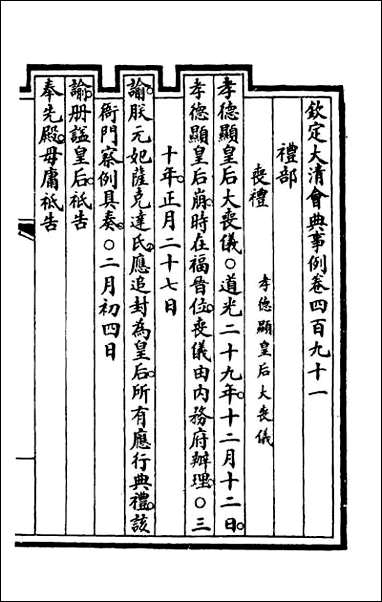 欽定大清會典事例卷四百九十一
禮部
喪禮 孝德顯皇后大喪儀
孝德顯皇后大喪儀○道光二十九年十二月十二日
孝德顯皇后崩時在福晉位喪儀由內務府辦理○三
十年正月二十七日
諭朕元妃薩克達氏應追封為皇后所有應行典禮該
衙門察例具奏○二月初四日
諭冊諡皇后祇告
奉先殿毋庸祗告